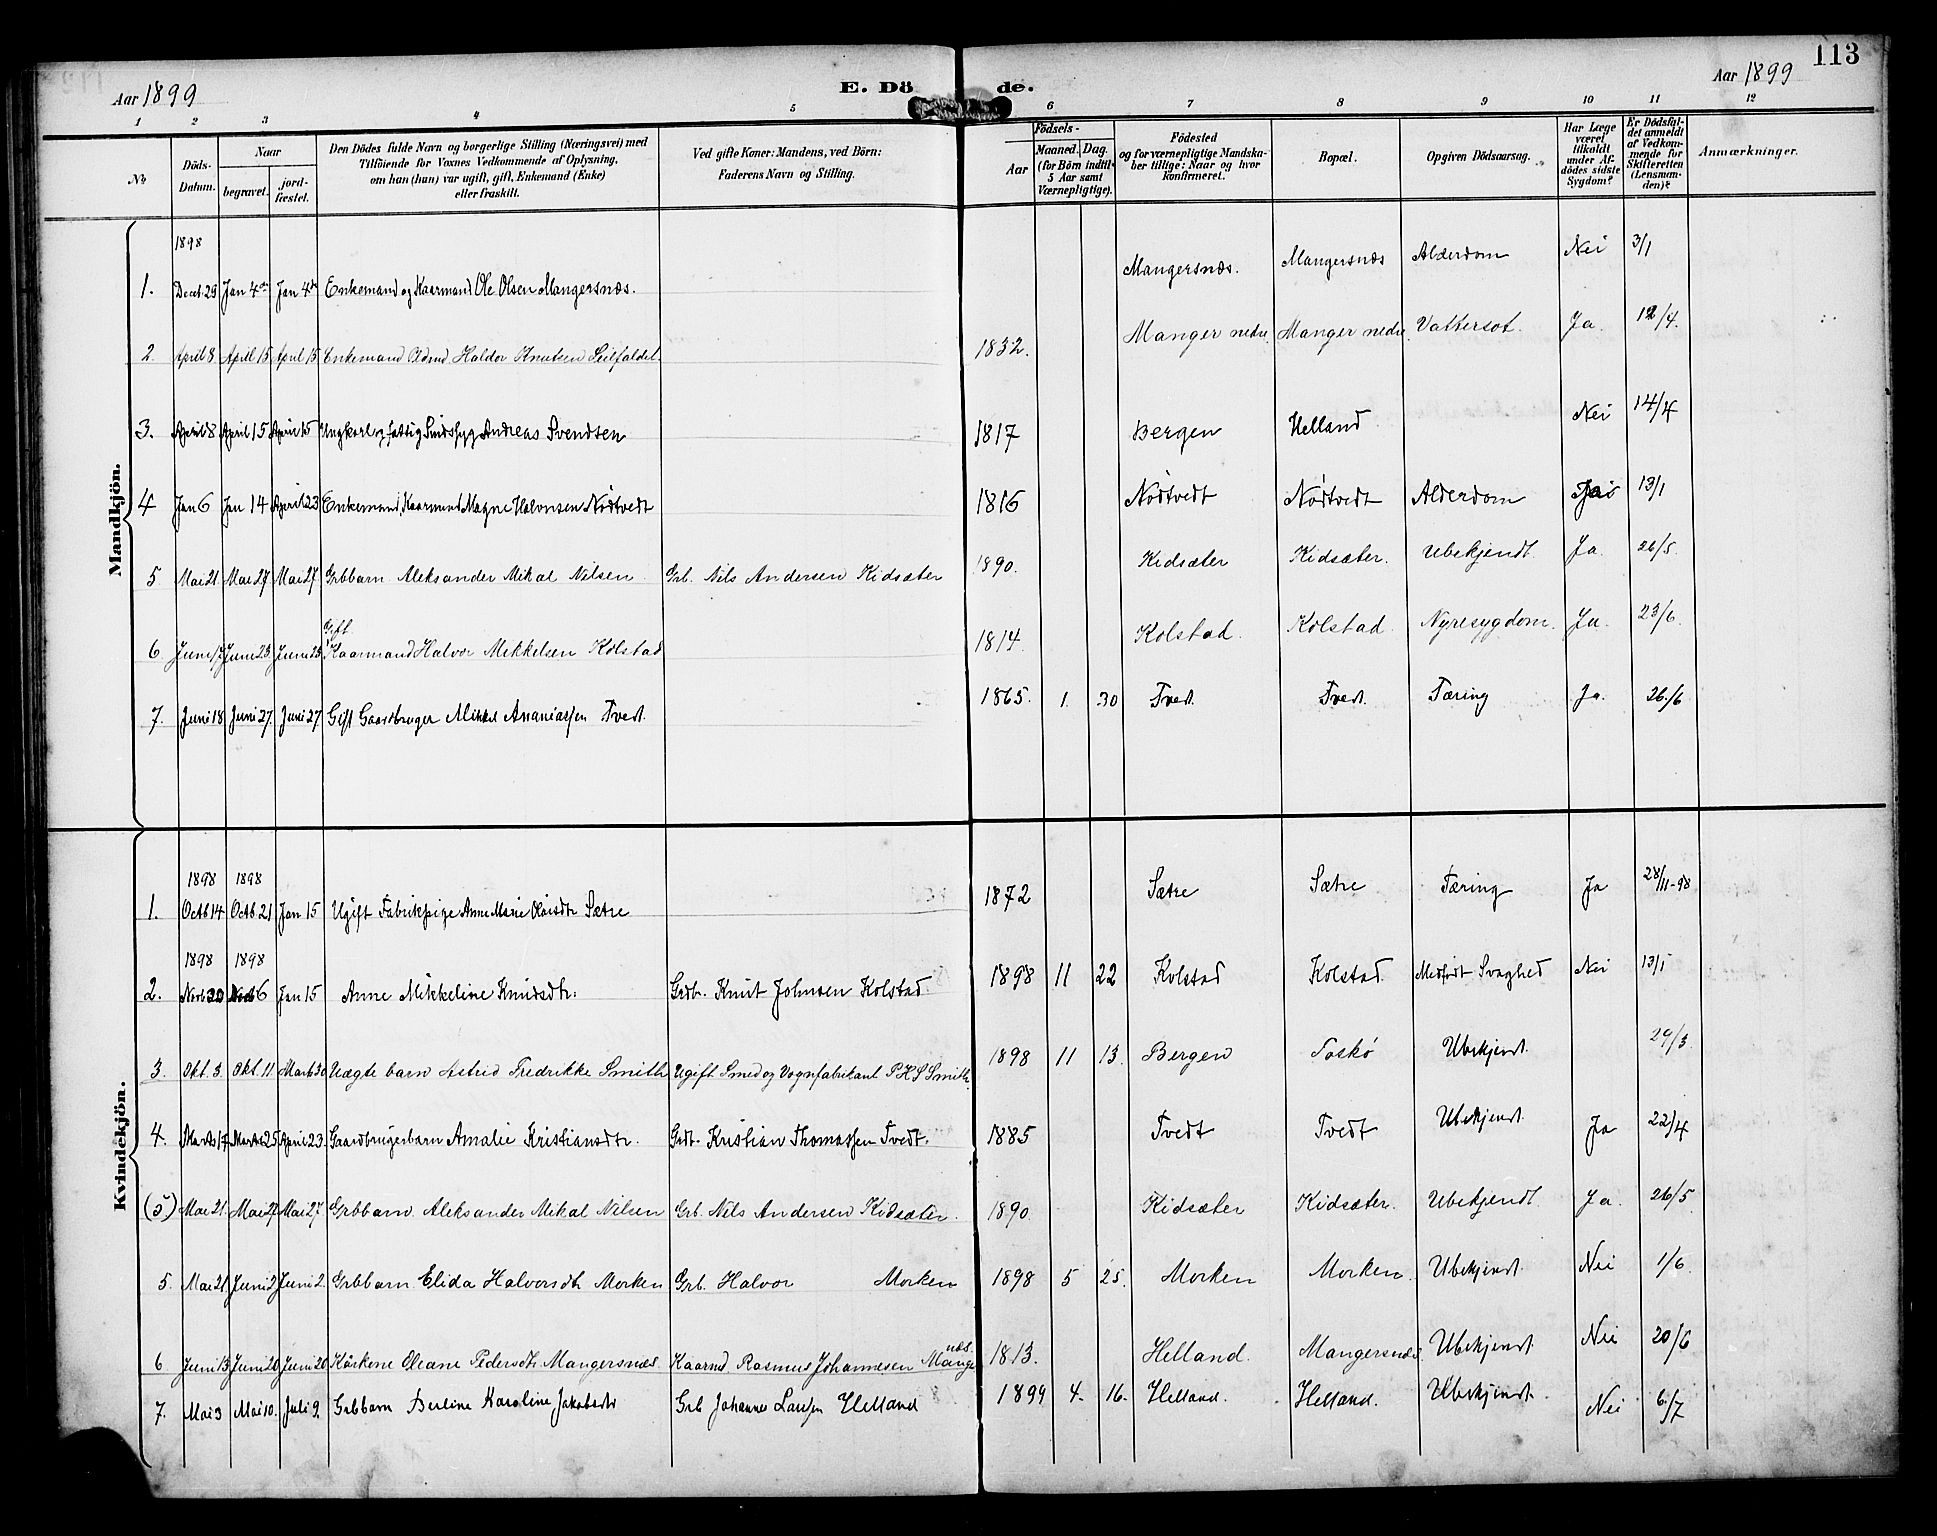 113
Aar 1899
E. Döde.
Aar 1899
1 2 3 4 5 6 7 8 9 10 11 12
No
Döds-Datum.
Naar begravet. jord-fæstet.
Den Dödes fulde Navn og borgerlige Stilling (Næringsvei) med Tilföiende for Voxnes Vedkommende af Oplysning, om han (hun) var ugift, gift, Enkemand (Enke) eller fraskilt.
Ved gifte Koner: Mandens, ved Börn: Faderens Navn og Stilling.
Födsels-
Aar
Maaned. Dag. (for Börn indtil 5 Aar samt Værnepligtige).
Födested og for værnepligtige Mandska-ber tillige: Naar og hvor konfirmeret.
Bopæl.
Opgiven Dödsaarsag.
Har Læge været tilkaldt under Af-dödes sidste Sygdom?
Er Dödsfal-det anmeldt af Vedkom-mende for Skifteretten (Lensman-den)?
Anmærkninger.
Mandkjön.
1898
1. Decb. 29 Jan 4de Jan 4de Enkemand og Kaarmand Ole Olsen Mangersnæs. Mangersnæs. Mangersnæs Alderdom Nei 3/1
2. April 8 April 15 April 15 Enkemand Haldor Knutsen 1832. Manger nedre Manger nedre. Vattersot. Ja. 12/4.
3. April 8 April 15 April 15 Ungkarl og fattig Sindssyg Andreas Svendsen 1817 Bergen Helland Nei 14/4
4 Jan 6 Jan 14 April 23 Enkemand, Kaarmand Magne Nødtvedt 1816 Nødtvedt Nødtvedt Alderdom 13/1
5 Mai 21 Mai 27 Mai 27 Grbbarn Aleksander Mikal Nilsen Grb. Nils Andersen Kidsæter 1890. Kidsæter Kidsæter. Ubekjendt Ja. 26/5.
Gift
6 Juni Juni 23 Juni 23 Kaarmand Halvor Mikkelsen Kolstad 1814 Kolstad. Kolstad. Nyresygdom. Ja. 23/6.
7. Juni 18 Juni 27 Juni 27 Gift Gaardbruger Mikkel Ananiassen Tvedt. 1865. 1. 30 Tvedt. Tvedt. Tæring Ja. 26./6
Kvindekjön.
1898 1898
1. Octb 14 Octb 21 Jan 15 Ugift Fabrikpige Anne Marie Sætre 1872 Sætre Sætre Tæring Ja 28/11-98
1898 1898
2. Novb 30 6 Jan 15 Anne Mikkeline Knudsdtr. Grdbr. Knut Johnsen Kolstad 1898 11 22 Kolstad Kolstad. Medfødt Svaghed Nei 13/1
3. Okt. 3. Okt. 11. Marts 30 Uægte barn Astrid Fredrikke Smith Ugift Smed og Vognfabrikant P H S Smith. 1898 11 13. Bergen Toskø Ubekjendt. 29/3
4. Marts 17 Marts 25 April 23. Gaardbrugerbarn Amalie Kristiansdtr. Grdbr. Kristian Thomassen Tvedt. 1885 Tvedt Tvedt Ubekjendt. Ja 22/4
(5) Mai 21. Mai 27 Mai 27 Grbbarn. Aleksander Mikal Nilsen Grb. Nils Andersen Kidsæter. 1890. Kidsæter Kidsæter. Ubekjendt. Ja. 26/5.
5. Mai 21. Juni 2 Juni 2. Grbbarn Elida Halvorsdtr Morken Grb. Halvor Morken 1898 5 25. Morken Morken. Ubekjendt. Nei 1/6.
6 Juni 13 Juni 20 Juni 20 Kårkone Eleane Pedersdtr Mangersnæs. Kaarmd Rasmus Johannesen Mangersnæs. 1813. Helland. Mangersnæs. Ubekjendt. Nei 20/6
7. Mai 3 Mai 10. Juli 9. Grbbarn Berline Karoline Jakobsdtr Grb Johannes Larssen Helland 1899 4. 16. Helland. Helland. Ubekjendt. Nei 6./7